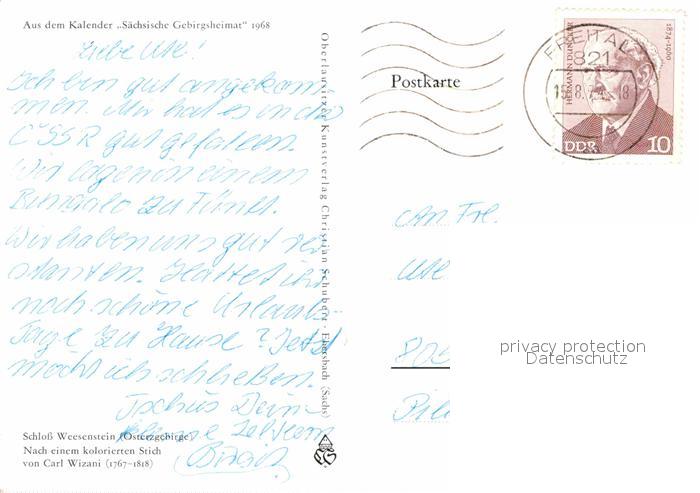 Aus dem Kalender „Sächsische Gebirgsheimat" 1968
Liebe Ute!
Ich bin gut angekom-
men. Mir hat es in der
ČSSR gut gefallen.
Wir lagen in einem
Bungalo zu Fünft.
Wir haben uns gut ver
standen. Hattet ihr
noch schöne Urlaubs-
Tage zu Hause? Jetzt
möcht ich schließen.
Tschüs Dein
Birgit
Schloß Weesenstein (Osterzgebirge)
Nach einem kolorierten Stich
von Carl Wizani (1767–1818)
Oberlausitzer Kunstverlag Christian Schubert · Ebersbach (Sachs)
Postkarte
FREITAL
821
15.8.74-18
HERMANN DUNCKER
1874-1960
DDR 10
An Frl.
Ute
privacy protection
Datenschutz